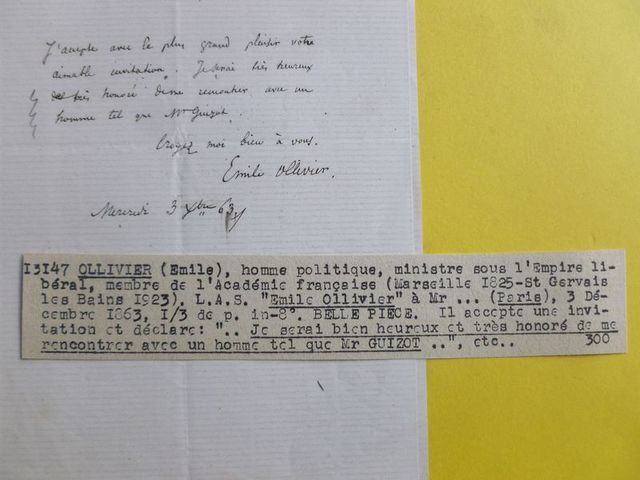 J'accepte avec le plus grand plaisir votre
aimable invitation. Je serai très heureux
très honoré de me rencontrer avec un
homme tel que Mr Guizot.
Croyez moi bien à vous.
Emile Ollivier.
Mercredi 3 Xbre 63
13147 OLLIVIER (Emile), homme politique, ministre sous l'Empire li-
béral, membre de l'Académie française (Marseille 1825-St Gervais
les Bains 1923). L.A.S. "Emile Ollivier" à Mr ... (Paris), 3 Dé-
cembre 1863, 1/3 de p. in-8°. BELLE PIECE. Il accepte une invi-
tation et déclare: ".. Je serai bien heureux et très honoré de me
rencontrer avec un homme tel que Mr GUIZOT ..", etc.. 300